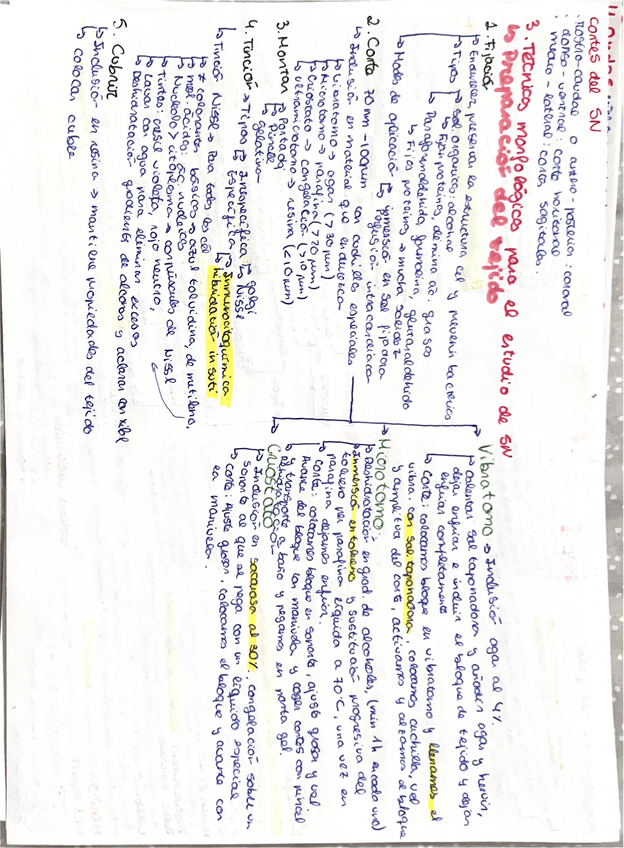 Cortes del SN
· Rostro-caudal o antero-posterior: coronal
· dorso-ventral: corte horizontal
· medio-lateral: corte sagital
3. Técnicas morfológicas para el estudio de SN
↳ Preparación del tejido
1. Fijación
↳ Endurecer, preservar la estructura cel y prevenir bacterias
↳ Tipos ↳ Sol. orgánicos: alcohol
↳ Fijan proteínas, elimina ac. grasos
↳ Paraformaldehido, formalina, glutaraldehido
↳ Fija proteínas → mucha solidez
↳ Modo de aplicación ↳ inmersión en sol fijadora
↳ Perfusión intracardiaca
2. Corte 70 nm - 100 µm con cuchillas especiales
↳ Inclusión en material que endurezca
↳ Vibratomo → agar (> 30 µm)
↳ Microtomo → parafina (> 20 µm)
↳ Criostato → congelación (> 10 µm)
↳ ultramicrotomo → resina (< 10 µm)
3. Montar ↳ Portaobj
↳ Pincel
↳ gelatina
4. Tinción → Tipos ↳ Inespecífica ↳ golgi
↳ Nissl
↳ Específica ↳ Inmunocitoquímica
↳ hibridación in situ
↳ Tinción Nissl → Para todas las cel
↳ ≠ colorantes básicos → azul toluidina, de metileno,
↳ mol. ácidas: ácidos nucleicos
↳ Núcleolo > citoplasma → corpúsculos de Nissl
↳ Tintes: cresil violeta, rojo neutro,
↳ Lavar con agua para eliminar excesos
↳ Deshidratación gradiente de alcohol y aclarar con xilol
5. Cubrir
↳ Inclusión en resina → mantiene propiedades del tejido
↳ colocar cubre
Vibratomo → Inclusión agar al 4%
↳ Calentar sol tamponadora y añadir agar, y hervir,
dejar enfriar e incluir el bloque de tejido y dejar
enfriar completamente
↳ Corte: colocamos bloque en vibratomo y llenamos el
vibra. con sol. tamponadora, colocamos cuchilla, vel
y amplitud del corte, activamos y alzamos el bloque
Microtomo:
↳ Deshidratación en grad de alcoholes, (min 1h en cada uno)
↳ Inmersión en tolueno y sustitución progresiva del
tolueno por parafina líquida a 70°C, una vez en
parafina dejamos enfriar.
↳ Corte: colocamos bloque en soporte, ajuste grosor y vel.
Avance del bloque con manivela y coger cortes con pincel
y transporte a baño y pegamos en porta gel.
↳ Rehidratación
Criostato
↳ Inclusión en sacarosa al 30%, congelación sobre un
soporte al que se pega con un líquido especial
↳ Corte: Ajuste grosor, colocamos el bloque y avance con
la manivela.